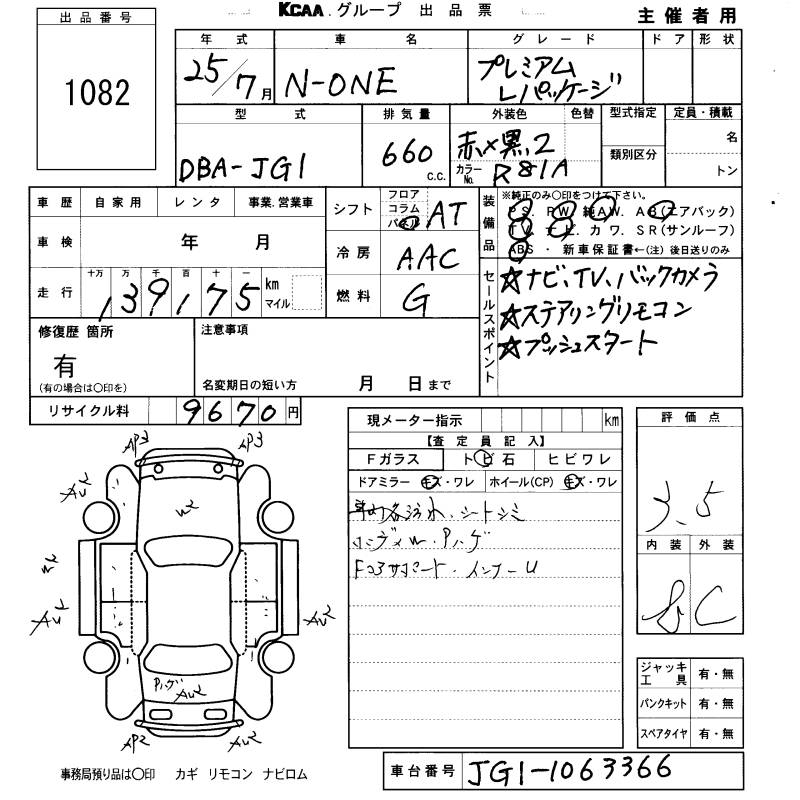 KCAA グループ 出品票
主催者用
出品番号
1082
年式 車名 グレード ドア 形状
25/7月 N-ONE プレミアム
Lパッケージ
型式 排気量 外装色 色替 型式指定 定員・積載
DBA-JG1 660 c.c. 赤×黒,2 名
カラーNo. R81A 類別区分 トン
車歴 自家用 レンタ 事業.営業車
車検 年 月
走行 十万 万 千 百 十 一
139175 km マイル
シフト フロア コラム パネル AT
冷房 AAC
燃料 G
装備品 ※純正のみ〇印をつけて下さい。
PS. PW. 純AW. AB(エアバック)
TV. ナビ. カワ. SR(サンルーフ)
ABS ・ 新車保証書←(注) 後日送りのみ
セールスポイント
☆ナビ、TV、バックカメラ
☆ステアリングリモコン
☆プッシュスタート
修復歴 箇所 注意事項
有
(有の場合は〇印を) 名変期日の短い方 月 日まで
リサイクル料 9670円
現メーター指示 km
【査定員記入】
Fガラス トビ石 ヒビワレ
ドアミラー キズ・ワレ ホイール(CP) キズ・ワレ
シートシミ
評価点
3.5
内装 外装
C
ジャッキ工具 有・無
パンクキット 有・無
スペアタイヤ 有・無
AP3 AP3
AU2
W2
W2
AU2
AU2
AU2
AP2 AU2
事務局預り品は〇印 カギ リモコン ナビロム
車台番号 JG1-1063366